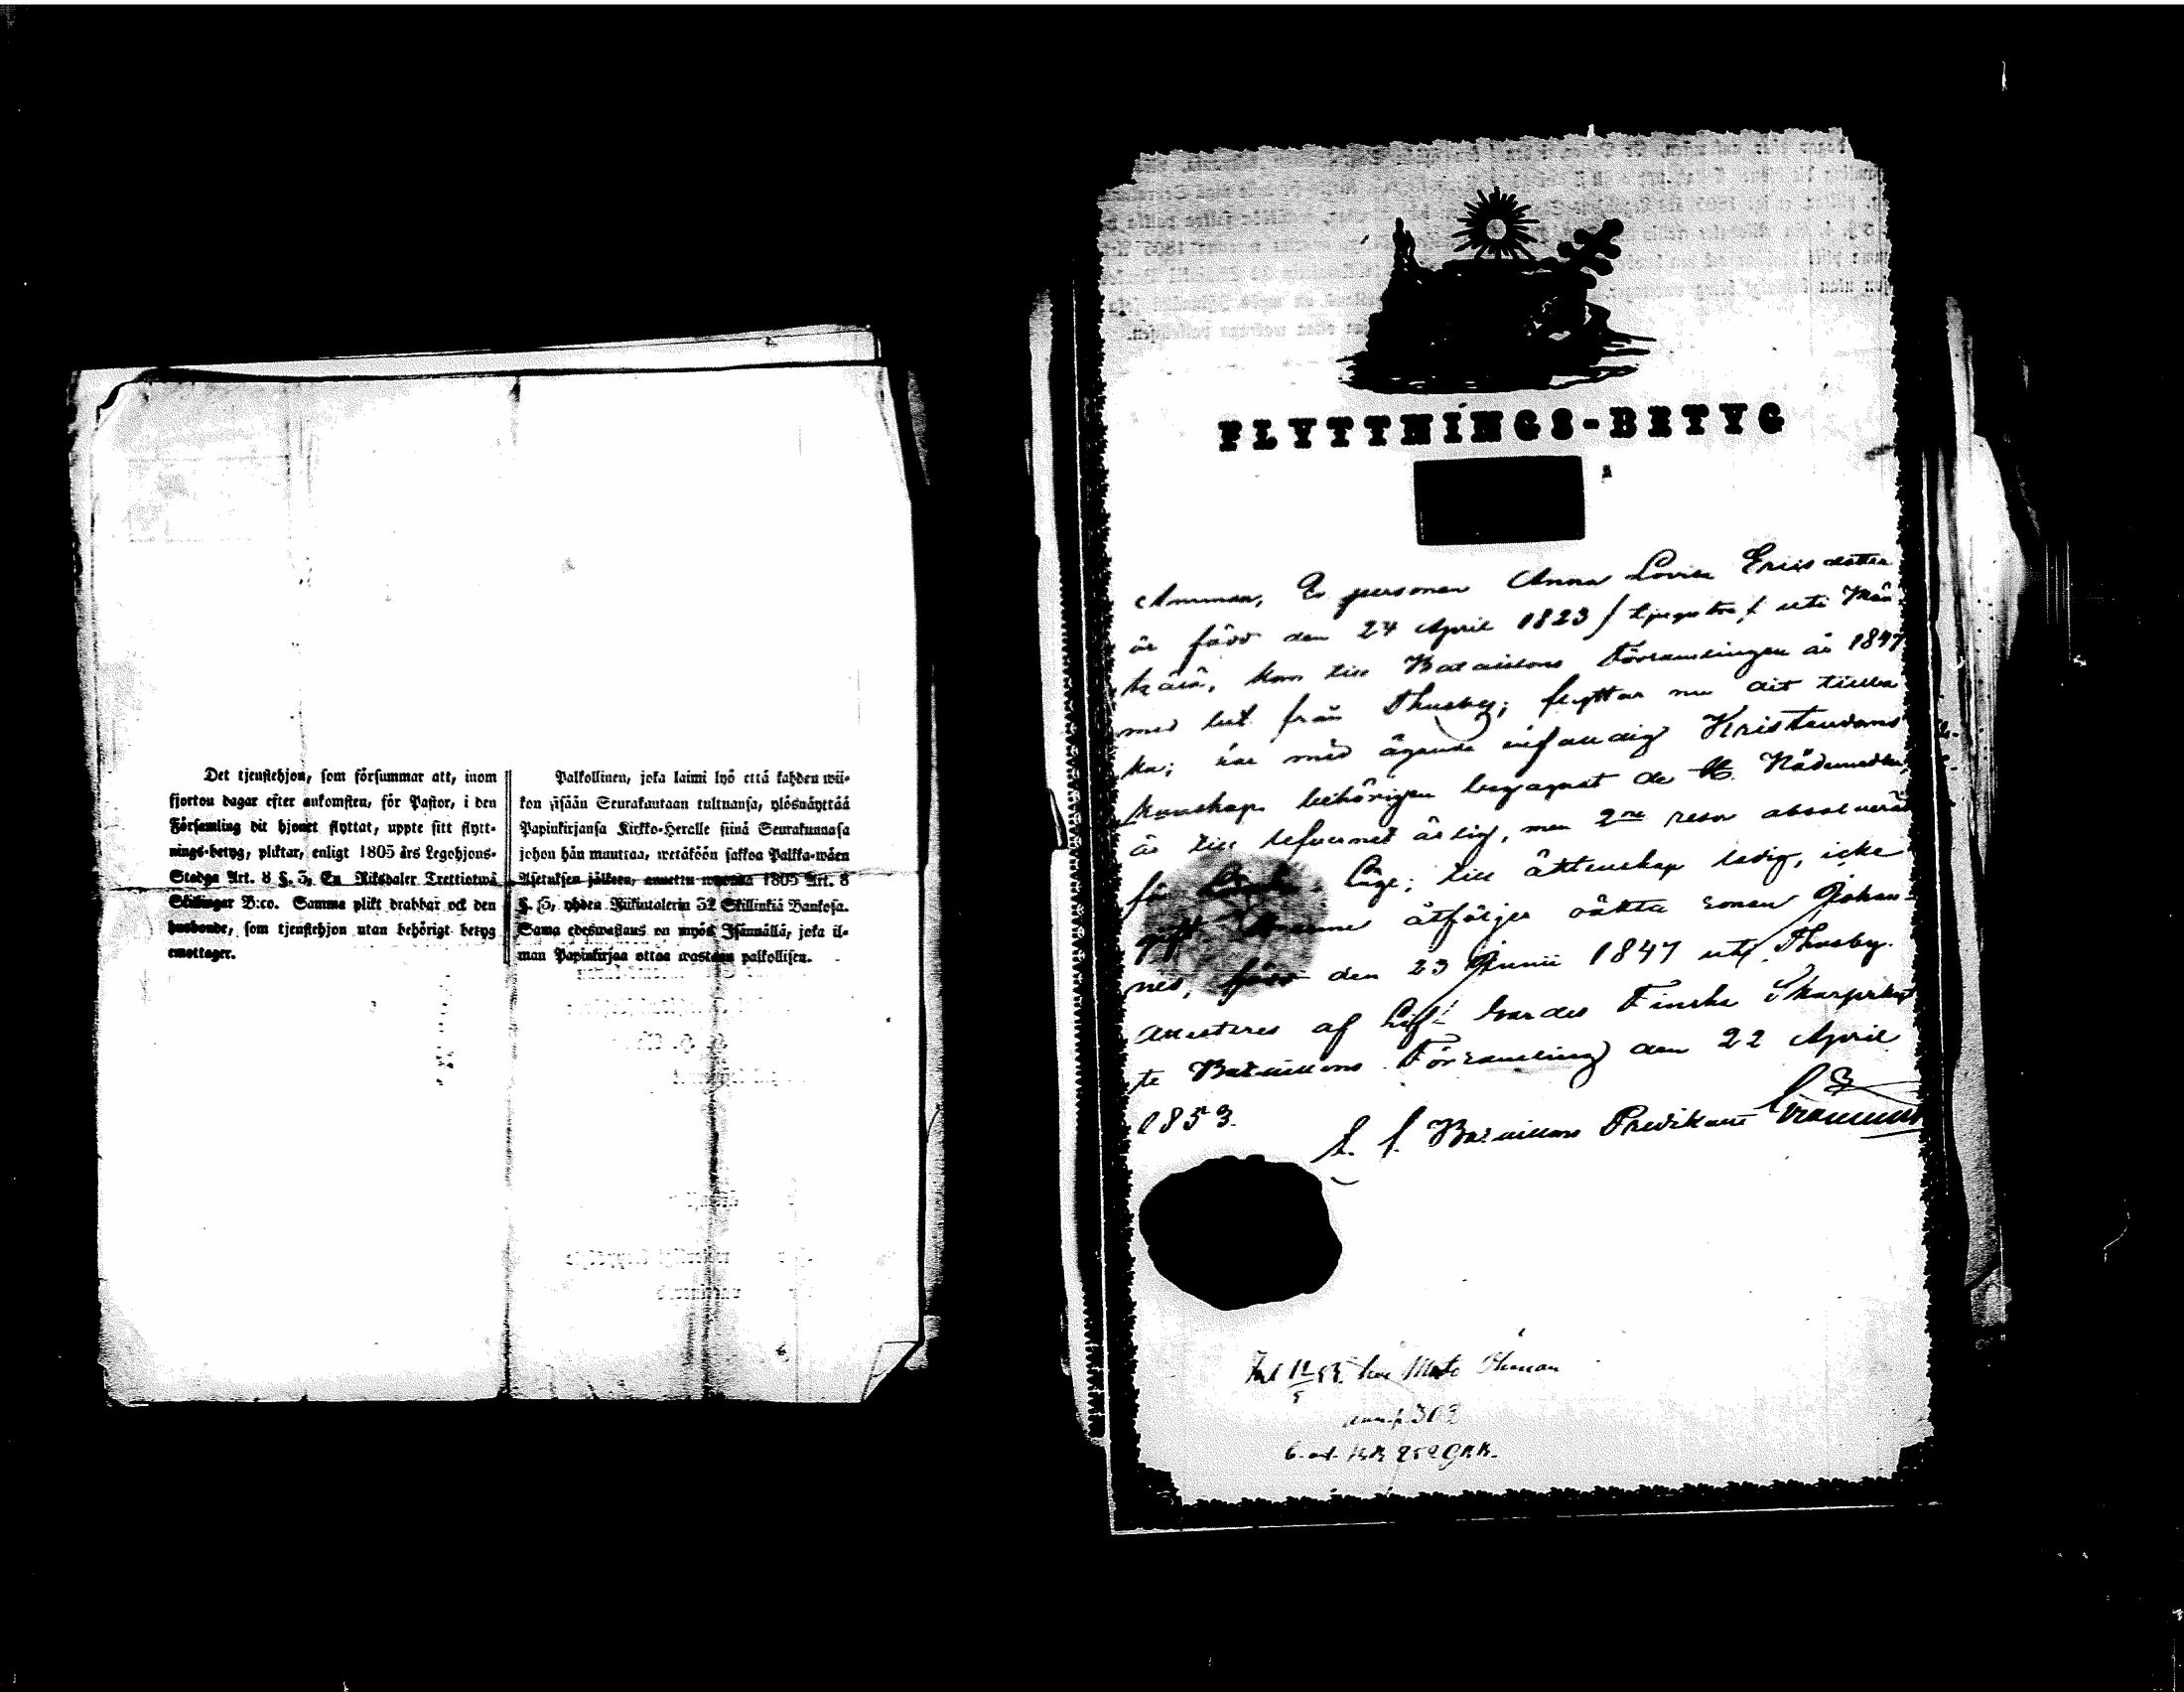 Det tjenstehjon, som försummar att, inom
fjorton dagar efter ankomsten, för Pastor, i den
Församling dit hjonet flyttat, uppte sitt flytt-
nings-betyg, pliktar, enligt 1805 års Legohjons-
Stadga Art. 8 §. 3, En Riksdaler Trettiotwå
Skillingar B:co. Samma plikt drabbar ock den
husbonde, som tjenstehjon utan behörigt betyg
emottager.
Palkollinen, joka laimi lyö että kahden wii-
kon sisään Seurakuntaan tultuansa, ylösnäyttää
Papinkirjansa Kirkko-Heralle siinä Seurakunnasa
johon hän muuttaa, wetäköön sakkoa Palkka-wäen
Asetuksen jälkeen, annettu wuonna 1805 Art. 8
§. 3, yhden Riikintalerin 32 Skillinkiä Bankosa.
Sama edeswastaus on myös Isännällä, joka il-
man Papinkirjaa ottaa wastaan palkollisen.
FLYTTNINGS-BETYG
Amman, Qs personen Anna Lovisa Ericsdotter
är född den 24 April 1823 uti Män
tzälä, kom till Bataillons Församlingen år 1847
med bet. från Thusby; flyttar nu dit tillba
ka; har med ägande Kristendoms
kunskap behörigen begagnat de Nådemedlen,
är till lefvernet ärlig, men 2ne resor absolverad
för Läge; till äktenskap ledig, icke
åtföljes oäkta sonen Johan-
nes, född den 23 Junii 1847 uti Thusby.
Attesteras af Lif Gardes Finska Skarpskyt
te Bataillons Församling den 22 April
1853.
Bataillons Predikant
302